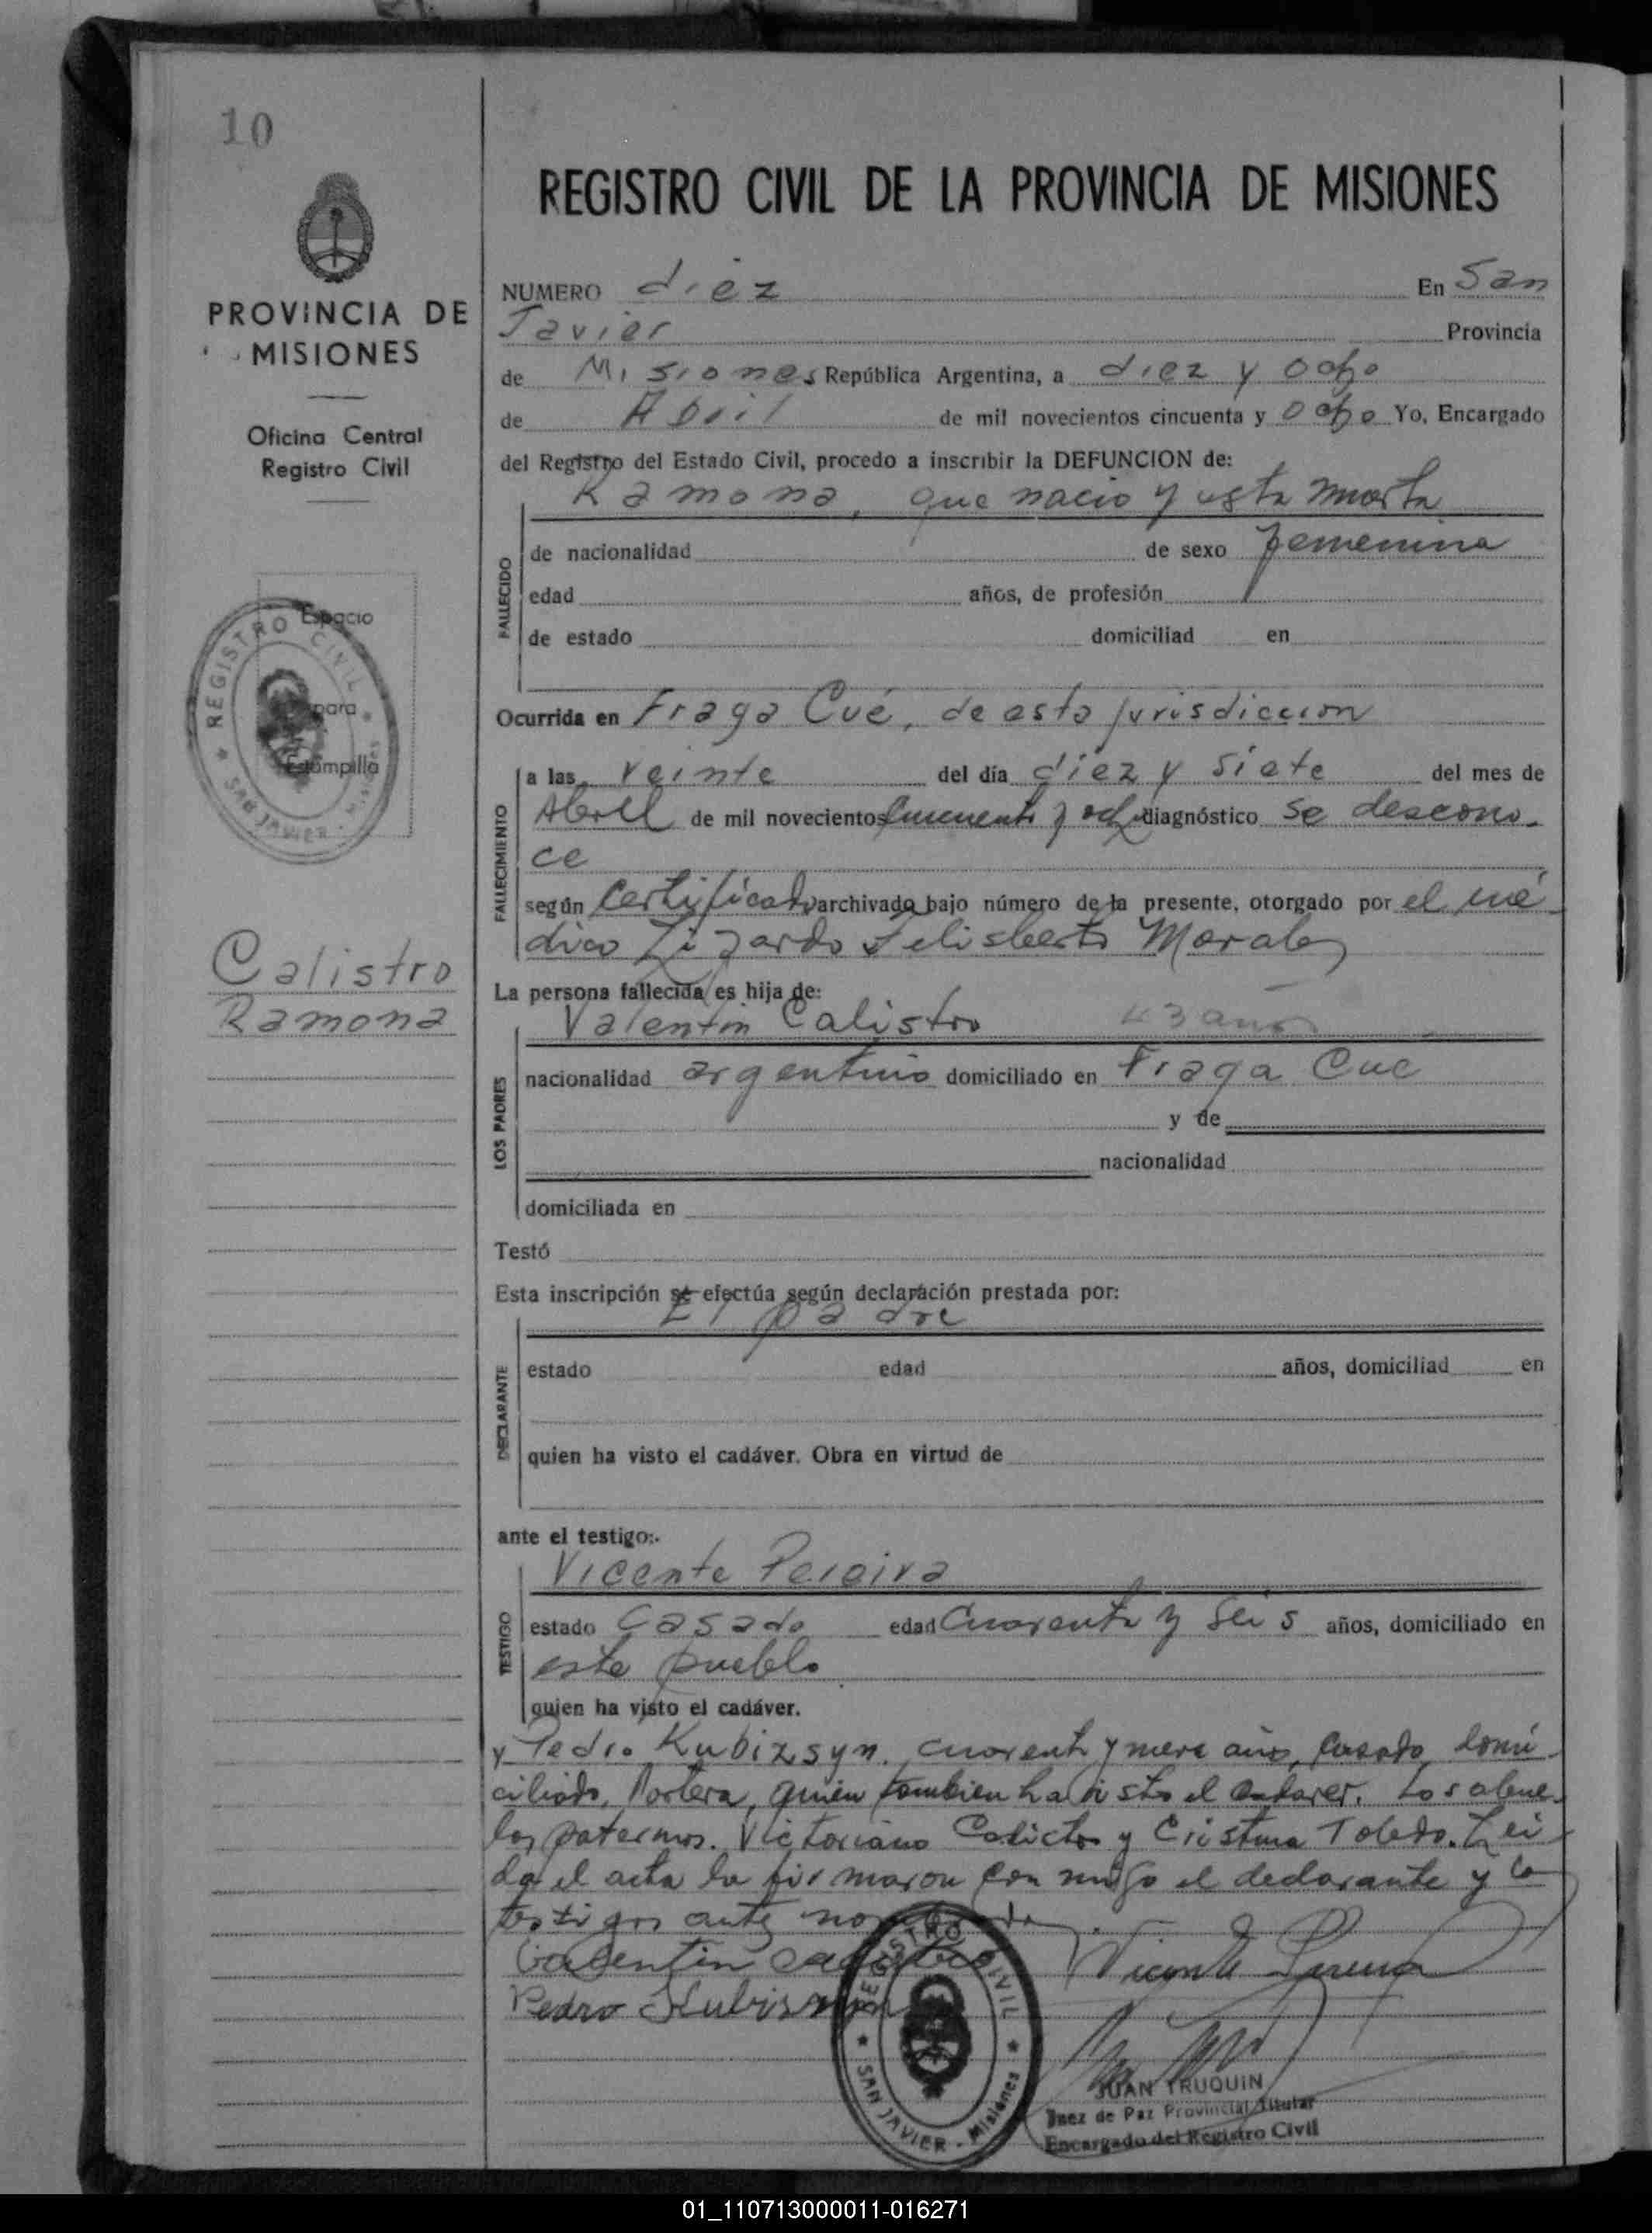 10
PROVINCIA DE
MISIONES
Oficina Central
Registro Civil
Espacio
para
Estampilla
REGISTRO CIVIL
SAN JAVIER - Misiones
Calistro
Ramona
REGISTRO CIVIL DE LA PROVINCIA DE MISIONES
NUMERO diez En San
Javier Provincia
de Misiones República Argentina, a diez y ocho
de Abril de mil novecientos cincuenta y ocho Yo, Encargado
del Registro del Estado Civil, procedo a inscribir la DEFUNCION de:
Ramona, que nacio y esta muerta
FALLECIDO
de nacionalidad de sexo femenina
edad años, de profesión
de estado domiciliad en
Ocurrida en Fraga Cué, de esta jurisdiccion
FALLECIMIENTO
a las veinte del día diez y siete del mes de
Abril de mil novecientos cincuenta y ocho diagnóstico se descono-
ce
según certificado archivado bajo número de la presente, otorgado por el mé-
dico Lizardo Felisberto Morales
La persona fallecida es hija de:
Valentin Calistro 43 años
LOS PADRES
nacionalidad argentino domiciliado en Fraga Cue
y de
nacionalidad
domiciliada en
Testó
Esta inscripción se efectúa según declaración prestada por:
El padre
DECLARANTE
estado edad años, domiciliad en
quien ha visto el cadáver. Obra en virtud de
ante el testigo:
Vicente Pereira
TESTIGO
estado Casado edad Cuarenta y seis años, domiciliado en
este pueblo
quien ha visto el cadáver.
y Pedro Kubizsyn, cuarenta y años, casado, domi-
ciliado, Portera, quien tambien ha visto el cadaver. Los abue-
los paternos. Victoriano y Cristina Toledo. Lei-
da el acta la firmaron con migo el declarante y lo
testigos antes
Valentin Calistro Vicente Pereira
Pedro
REGISTRO CIVIL
SAN JAVIER - Misiones
JUAN TRUQUIN
Juez de Paz Provincial Titular
Encargado del Registro Civil
01_110713000011-016271